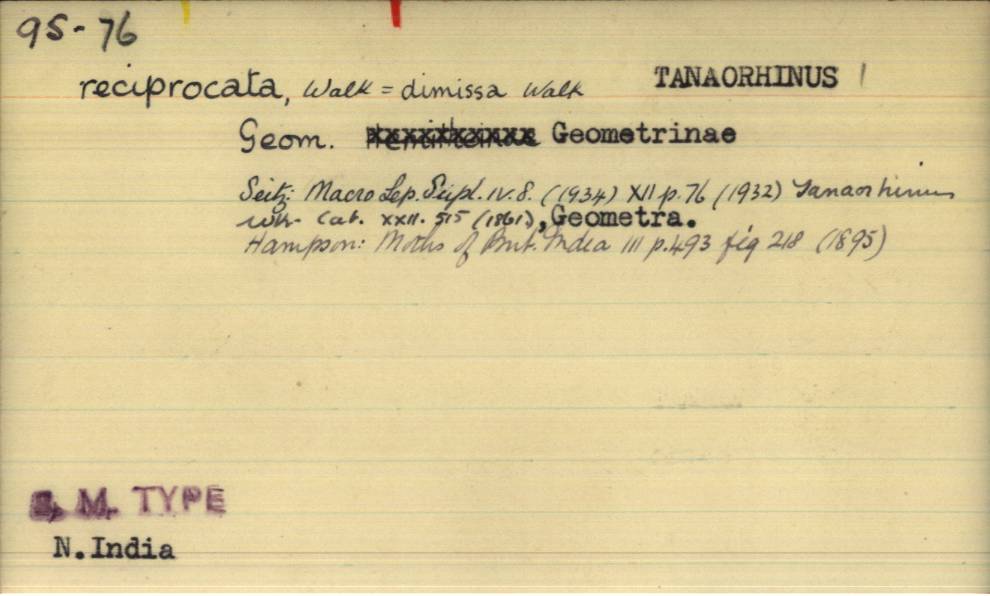 95-76
reciprocata, Walk = dimissa Walk TANAORHINUS 1
Geom. Geometrinae
Seitz: Macro Lep. Supl. IV. 8. (1934) XII p. 76 (1932) Tanaorhinus
Wlk. Cat. XXII. 515 (1861), Geometra.
Hampson: Moths of Brit. India III p. 493 fig 218 (1895)
B. M. TYPE
N. India